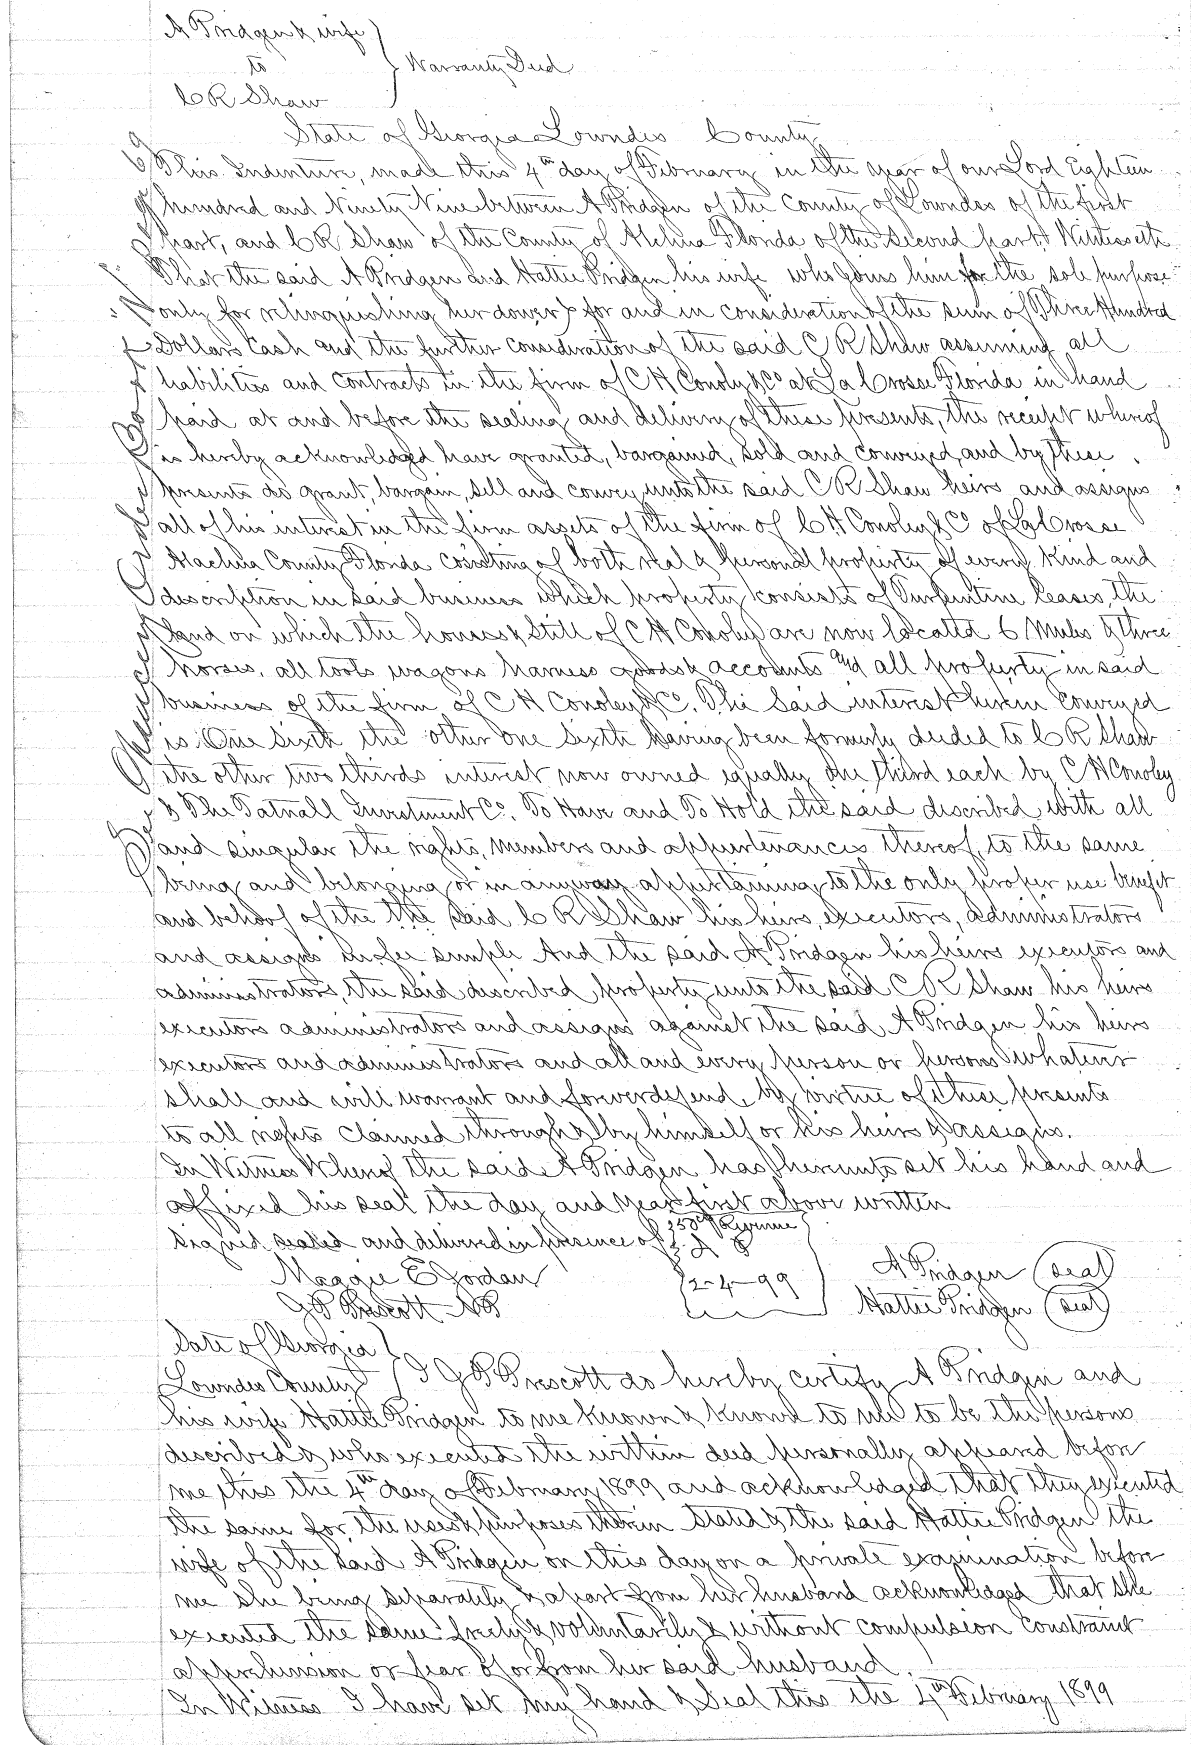 A Pridgen & wife
to
Warranty Deed
C R Shaw
State of Georgia Lowndes County
This Indenture, made this 4th day of February in the year of our Lord Eighteen
hundred and Ninety Nine between A Pridgen of the County of Lowndes of the first
part, and C R Shaw of the County of Alchua Florida of the second part, Witnesseth
That the said A Pridgen and Hattie Pridgen his wife who joins him for the sole purpose
only for relinquishing her dower, for and in consideration of the sum of Three Hundred
Dollars Cash and the further consideration of the said C R Shaw assuming all
liabilities and contracts in the firm of C H Conoly & Co at La Crosse Florida in hand
paid at and before the sealing and delivery of these presents, the receipt whereof
is hereby acknowledged have granted, bargained, sold and conveyed, and by these
presents do grant, bargain, sell and convey unto the said C R Shaw heirs and assigns
all of his interest in the firm assets of the firm of C H Conoley & C of La Crosse
Alachua County Florida cosisting of both real & personal property of every Kind and
description in said business which property consists of Turpentine leases, the
land on which the houses & Still of C H Conoley are now located 6 Mules & three
horses, all tools wagons harness accounts and all property in said
business of the firm of C H Conoley & Co. The Said interest herein conveyed
is One Sixth the other one Sixth having been formerly deeded to C R Shaw
the other two thirds interest now owned equally one third each by C H Conoley
& The Tatnall Investment Co. To Have and To Hold the said described with all
and singular the rights, members and appurtenances thereof, to the same
being and belonging or in anyway appertaining, to the only proper use benefit
and behoof of the the said C R Shaw his heirs, executors, administrators
and assigns in fee simple And the said A Pridgen his heirs executors and
administrators, the said described property unto the said C R Shaw his heirs
executors administrators and assigns against the said A Pridgen his heirs
executors and administrators and all and every person or persons whatever
shall and will warrant and forever defend, by virtue of these presents
to all rights claimed through & by himself or his heirs & assigns.
In Witness Whereof the said A Pridgen has hereunto set his hand and
affixed his seal the day and year first above written
Signed sealed and delivered in presence of Revenue
A P
Maggie E Jordan 2-4-99 A Pridgen (seal)
G P Prescott N P Hattie Pridgen (seal)
State of Georgia
Lowndes County I G P Prescott do hereby certify A Pridgen and
his wife Hattie Pridgen to me known & known to me to be the persons
described & who executed the within deed personally appeared before
me this the 4th day of February 1899 and acknowledged that they executed
the same for the uses & purposes therein stated & the said Hattie Pridgen the
wife of the said A Pridgen on this day on a private examination before
me she being separately & apart from her husband acknowledged that she
executed the same freely & voluntarily & without compulsion constraint
apprehension or fear of or from her said husband.
In Witness I have set my hand & seal this the 4th February 1899